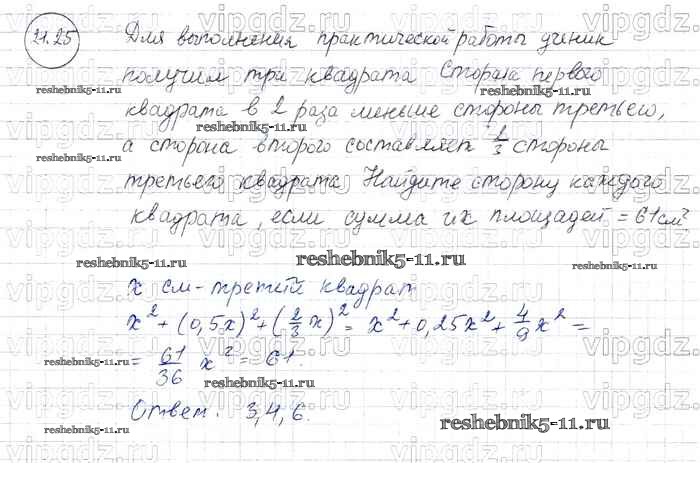 21.25 Для выполнения практической работы ученик
получил три квадрата Сторона первого
квадрата в 2 раза меньше стороны третьего,
а сторона второго составляет 2/3 стороны
третьего квадрата Найдите сторону каждого
квадрата, если сумма их площадей = 61 см²
x см - третий квадрат
x² + (0,5x)² + (2/3 x)² = x² + 0,25x² + 4/9 x² =
= 61/36 x² = 61.
Ответ. 3,4,6.
reshebnik5-11.ru
vipgdz.com